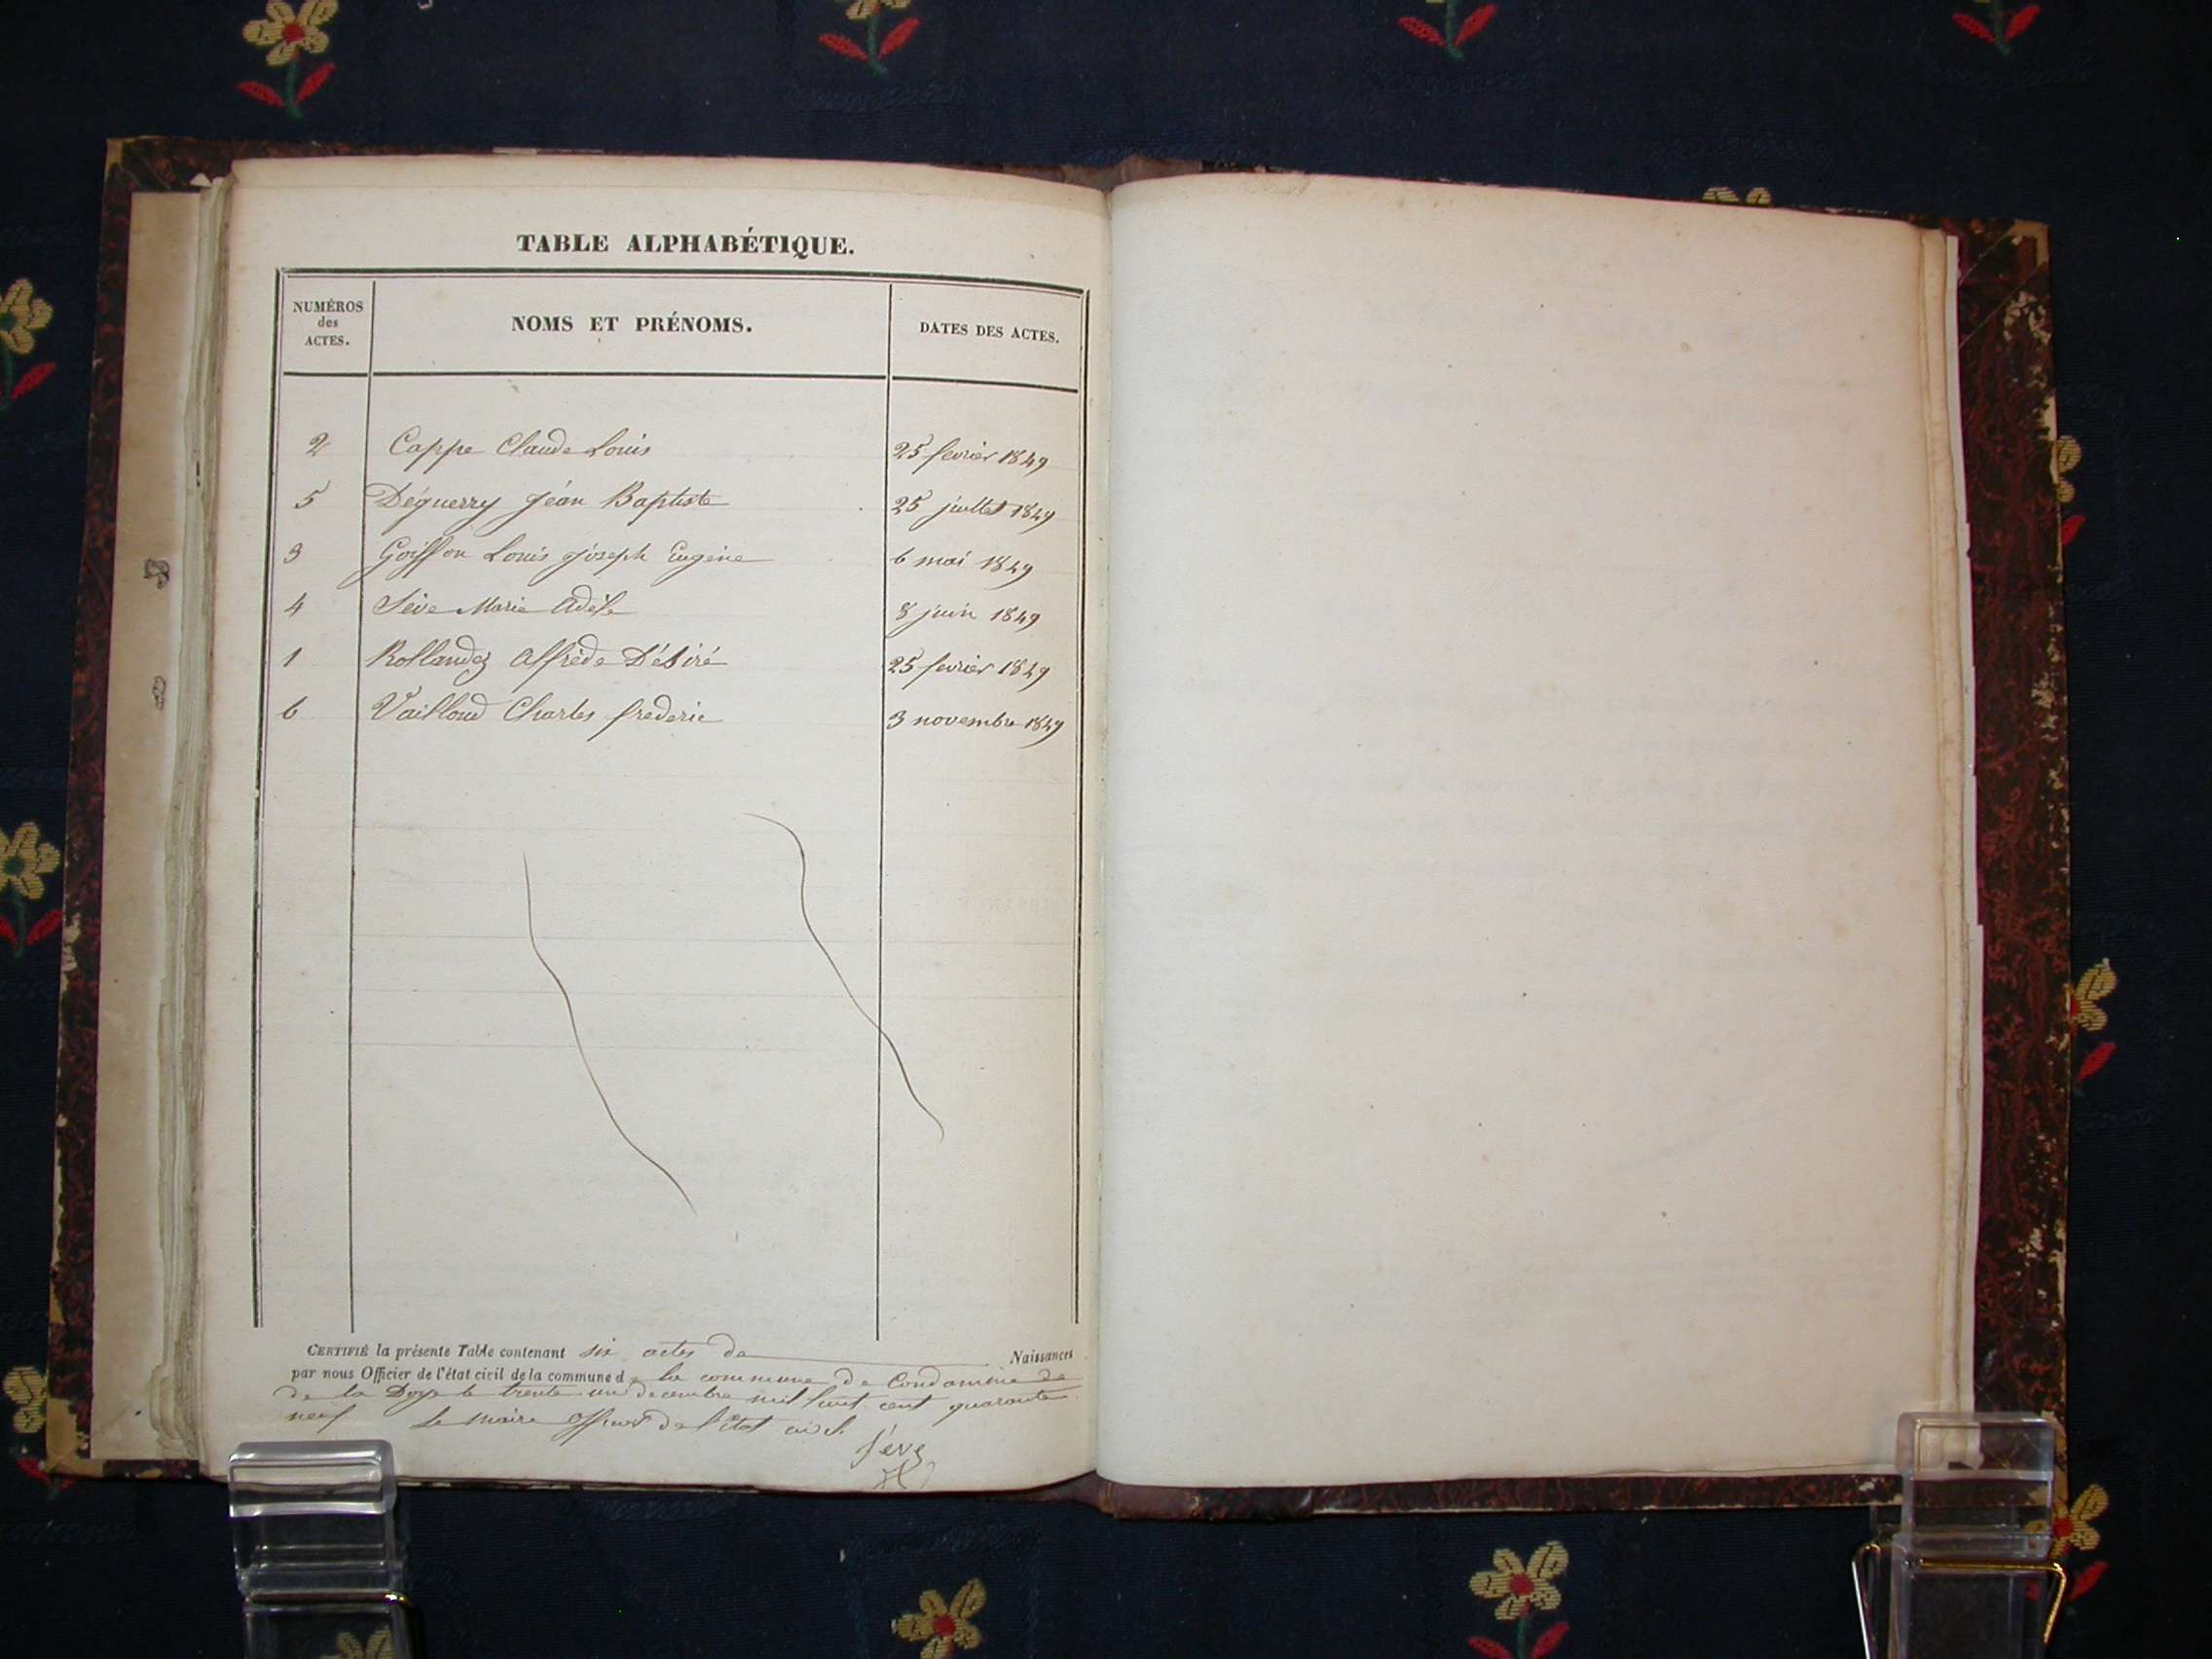 TABLE ALPHABÉTIQUE.
NUMÉROS
des
ACTES.
NOMS ET PRÉNOMS.
DATES DES ACTES.
2 Cappe Claude Louis 25 fevrier 1849
5 Déguerry Jéan Baptiste 25 juillet 1849
3 Goiffon Louis Joseph Eugène 6 mai 1849
4 Sève Marie Adèle 8 juin 1849
1 Rollandez Alfrède Désiré 25 fevrier 1849
6 Vailloud Charles frederic 3 novembre 1849
CERTIFIÉ la présente Table contenant six actes de Naissances
par nous Officier de l'état civil de la commune de la commune de Condamine de
de la Doye le trente un decembre mil huit cent quarante
neuf Le Maire Officier de l'Etat civil
Sève